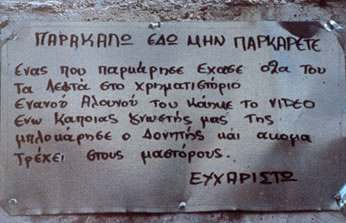 ΠΑΡΑΚΑΛΩ ΕΔΩ ΜΗΝ ΠΑΡΚΑΡΕΤΕ
Ενας που παρκάρησε Εχασε ολα του
Τα Λεφτά στο χρηματιστήριο
Ενανού Αλουνού του Κάηκε το VIDEO
Ενω Καποιας γνωστής μας της
μπλοκάρησε ο Δονητής και ακομα
Τρέχει στους μαστόρους.
ΕΥΧΑΡΙΣΤΩ